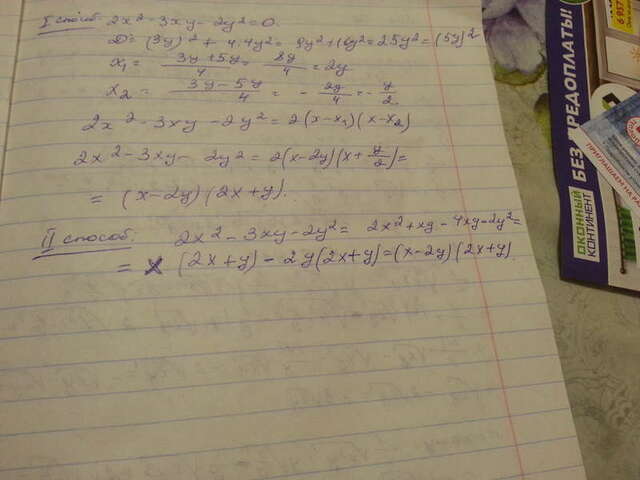 I способ: 2x² - 3xy - 2y² = 0.
D = (3y)² + 4·4y² = 9y² + 16y² = 25y² = (5y)²
x₁ = (3y + 5y)/4 = 8y/4 = 2y
x₂ = (3y - 5y)/4 = -2y/4 = -y/2.
2x² - 3xy - 2y² = 2(x - x₁)(x - x₂)
2x² - 3xy - 2y² = 2(x - 2y)(x + y/2) =
= (x - 2y)(2x + y).
II способ: 2x² - 3xy - 2y² = 2x² + xy - 4xy - 2y² =
= x (2x + y) - 2y(2x + y) = (x - 2y)(2x + y)
БЕЗ ПРЕДОПЛАТЫ!
ОКОННЫЙ
КОНТИНЕНТ